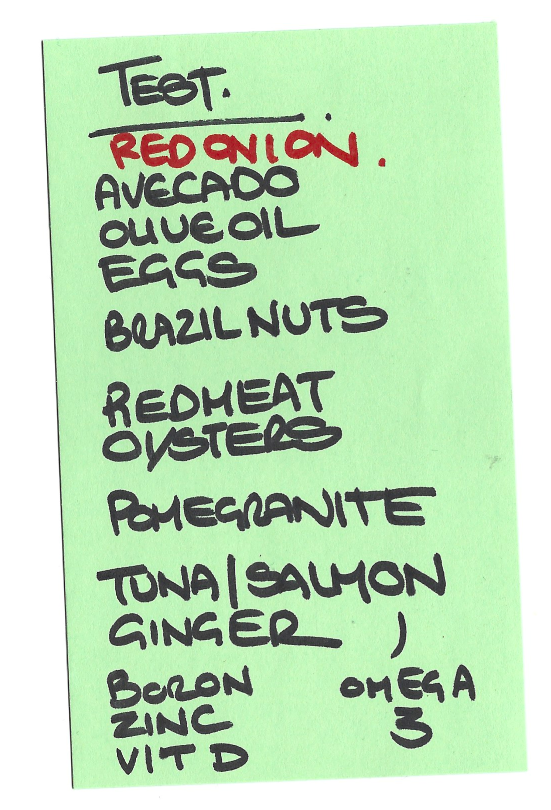 TEST.
RED ONION.
AVECADO
OLIVE OIL
EGGS
BRAZIL NUTS
RED MEAT
OYSTERS
POMEGRANITE
TUNA/SALMON
GINGER )
BORON
ZINC
VIT D
OMEGA
3